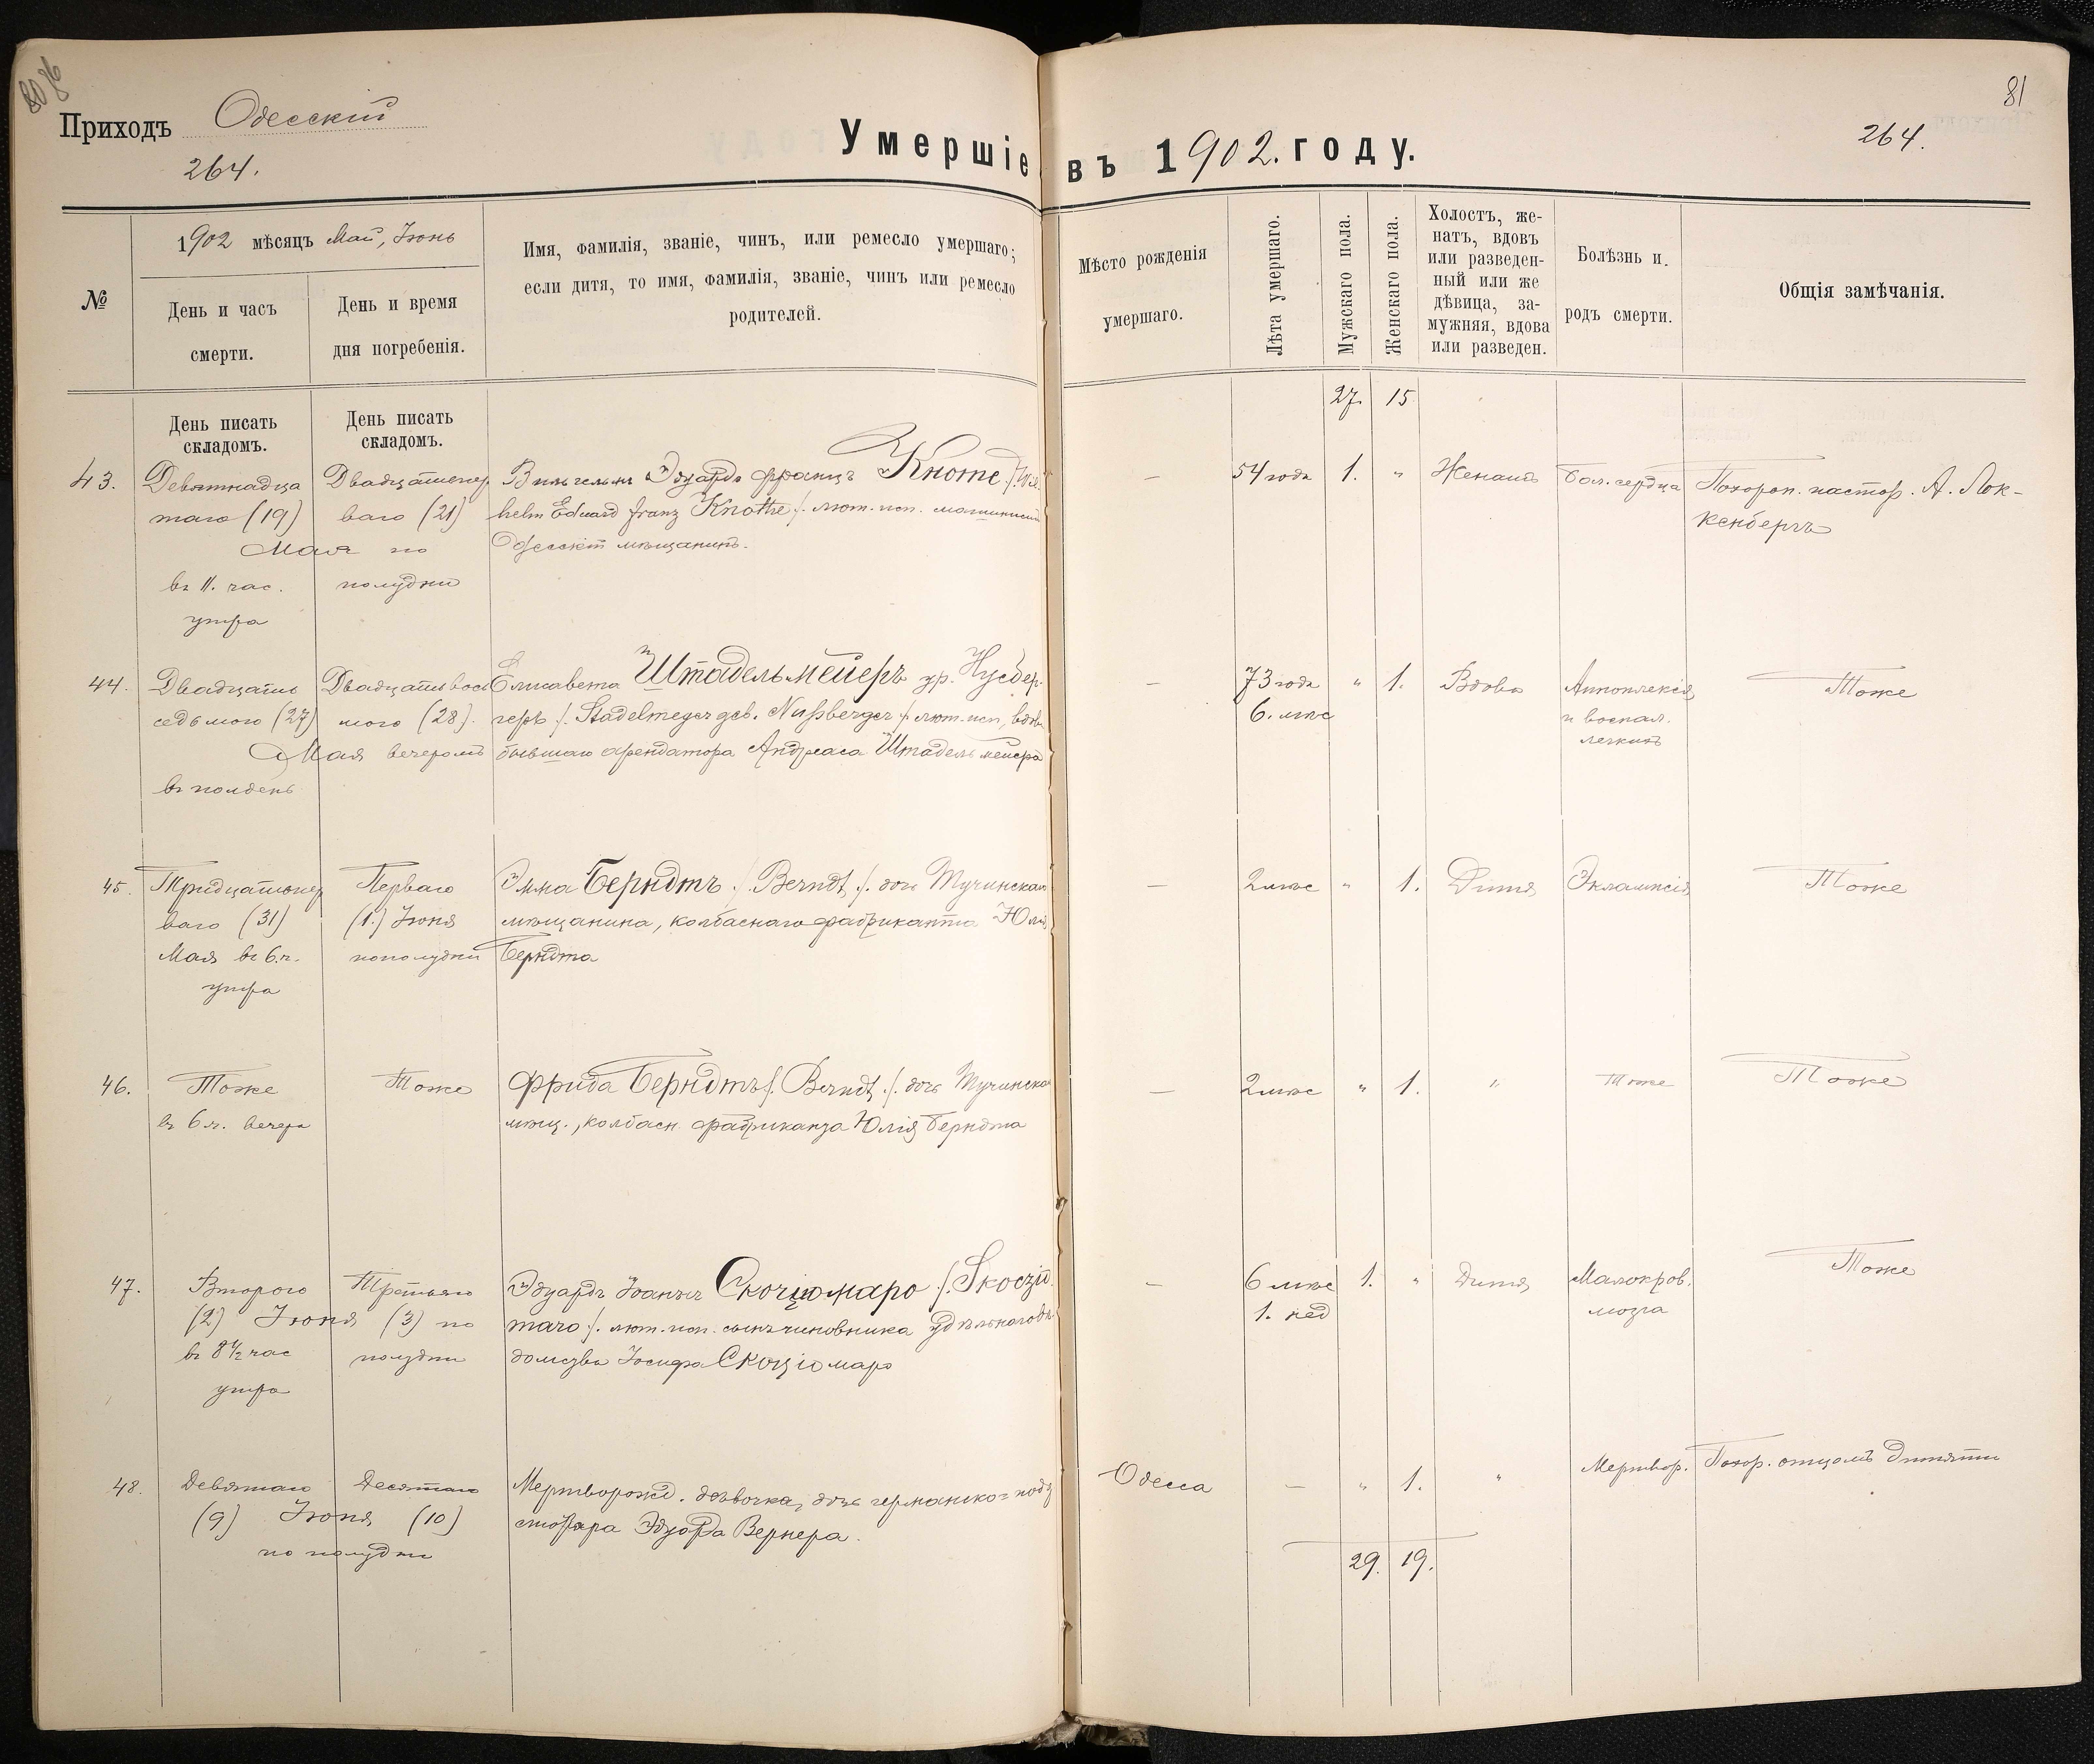 80 86
81
Приходъ Одесскій
264.
Умершіе въ 1902. году.
264.
№
1902 мѣсяцъ Май, Іюнь
День и часъ
смерти.
День и время
дня погребенія.
Имя, фамилія, званіе, чинъ, или ремесло умершаго;
если дитя, то имя, фамилія, званіе, чинъ или ремесло
родителей.
Мѣсто рожденія
умершаго.
Лѣта умершаго.
Мужскаго пола.
Женскаго пола.
Холостъ, же-
натъ, вдовъ
или разведен-
ный или же
дѣвица, за-
мужняя, вдова
или разведен.
Болѣзнь и
родъ смерти.
Общія замѣчанія.
День писать
складомъ.
День писать
складомъ.
27. 15
43.
Девятнадца
таго (19)
Мая
въ 11. час.
утра
Двадцатьпер
ваго (21)
по
полудни
Вильгельмъ Эдуардъ Францъ Кноте /. Wil
helm Eduard Franz Knothe /. лют. исп. машинистъ
Одесскій мѣщанинъ.
—
54 года
1.
"
Женатъ
Бол. сердца
Похорон. пастор. А. Лок-
кенбергъ
44.
Двадцать
седьмого (27)
Мая
въ полдень
Двадцатьвось
мого (28).
вечеромъ
Елисавета Штадельмейеръ ур. Нусбер-
геръ /. Stadelmeyer geb. Nußberger /. лют. исп., вдова
бывшаго арендатора Андреаса Штадельмейера
—
73 года
6. мѣс
"
1.
Вдова
Апоплексія
и воспал.
легкихъ
Тоже
45.
Тридцатьпер
ваго (31)
Мая въ 6 ч.
утра
Перваго
(1.) Іюня
пополудни
Эмма Берндтъ /. Berndt /. дочь Тучинскаго
мѣщанина, колбаснаго фабриканта Юлія
Берндта
—
2 мѣс
"
1.
Дитя
Эклампсія
Тоже
46.
Тоже
въ 6 ч. вечера
Тоже
Фрида Берндтъ /. Berndt /. дочь Тучинска
мѣщ., колбасн. фабриканта Юлія Берндта
—
2 мѣс
"
1.
"
Тоже
Тоже
47.
Второго
(2) Іюня
въ 8 1/2 час
утра
Третьяго
(3) по
полудни
Эдуардъ Іоаннъ Скоціомаро /. Skoczio
maro /. лют. исп. сынъ чиновника удѣльного вѣ
домства Іосифа Скоціомаро
—
6 мѣс
1. нед
1.
"
Дитя
Малокров.
мозга
Тоже
48.
Девятаго
(9) Іюня
по полудни
Десятаго
(10)
Мертворожд. дѣвочка, дочь германско-подд
столяра Эдуарда Вернера.
Одесса
—
"
1.
"
Мертвор.
Похор. отцомъ дитяти
29. 19.